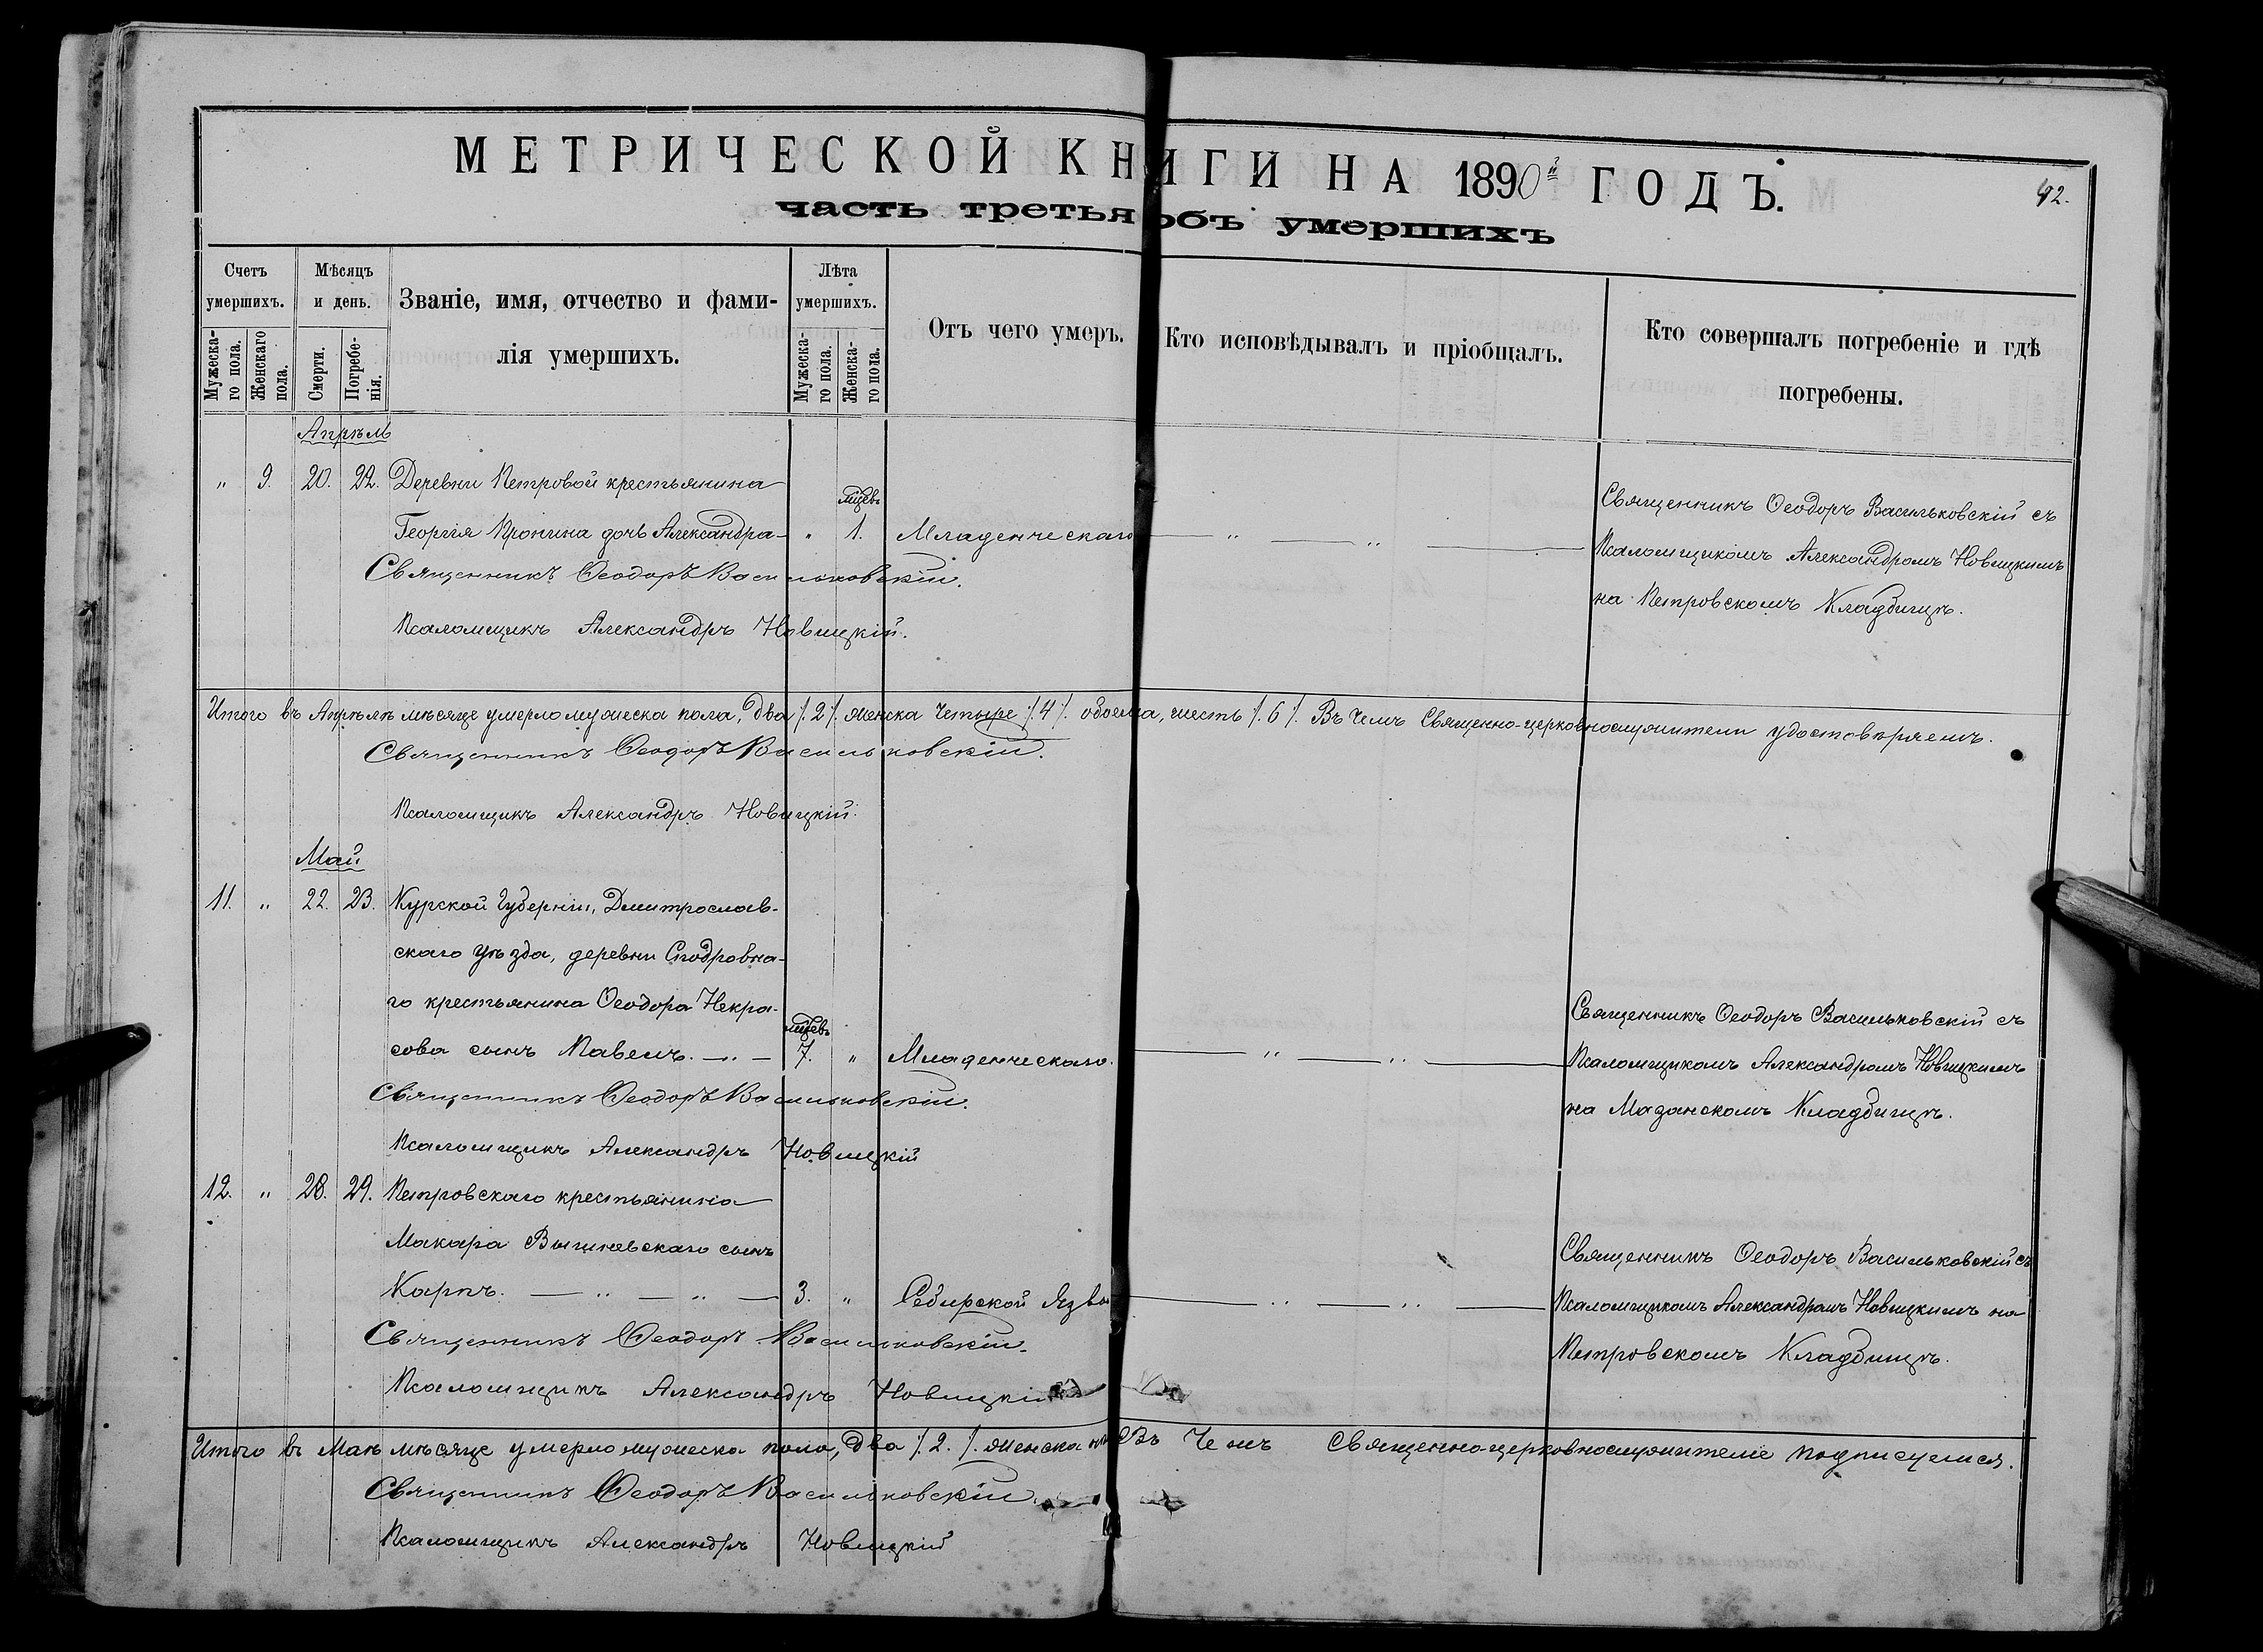 МЕТРИЧЕСКОЙ КНИГИ НА 1890й ГОДЪ.
92.
часть третья объ умершихъ
Счетъ умершихъ.
Мужеска-го пола.
Женскаго пола.
Мѣсяцъ и день.
Смерти.
Погребе-нія.
Званіе, имя, отчество и фами-
лія умершихъ.
Лѣта умершихъ.
Мужеска-го пола.
Женска-го пола.
Отъ чего умеръ.
Кто исповѣдывалъ и пріобщалъ.
Кто совершалъ погребеніе и гдѣ
погребены.
Апрѣль
" 9. 20. 22. Деревни Петровой крестьянина
Георгія Пронина дочь Александра " 1. Младенческаго — " — " —
Священникъ Ѳеодоръ Васильковскій съ
Псаломщикомъ Александромъ Новицкимъ
на Петровскомъ Кладбищѣ.
Священникъ Ѳеодоръ Васильковскій.
Псаломщикъ Александръ Новицкій.
Итого въ Апрѣлѣ мѣсяцѣ умерло мужеска пола, два /.2/. женска четыре /.4/. обоего, шесть /.6/. Въ чемъ Священно-церковнослужители удостовѣряемъ.
Священникъ Ѳеодоръ Васильковскій.
Псаломщикъ Александръ Новицкій.
Май
11. " 22. 23. Курской Губерніи, Дмитрослав-
скаго уѣзда, деревни
го крестьянина Ѳеодора Некра-
сова сынъ Павелъ. — " — 7. " Младенческаго. — " — " —
Священникъ Ѳеодоръ Васильковскій съ
Псаломщикомъ Александромъ Новицкимъ
на Мазанскомъ Кладбищѣ.
Священникъ Ѳеодоръ Васильковскій.
Псаломщикъ Александръ Новицкій
12. " 28. 29. Петровскаго крестьянина
Макара сынъ
Карпъ. — " — " — 3. " Сибирской Язвы — " — " —
Священникъ Ѳеодоръ Васильковскій съ
Псаломщикомъ Александромъ Новицкимъ на
Петровскомъ Кладбищѣ.
Священникъ Ѳеодоръ Васильковскій.
Псаломщикъ Александръ Новицкій
Итого въ Маѣ мѣсяцѣ умерло мужеска пола, два /.2./. женска Въ чемъ Священноцерковнослужители подписуемся.
Священникъ Ѳеодоръ Васильковскій.
Псаломщикъ Александръ Новицкій